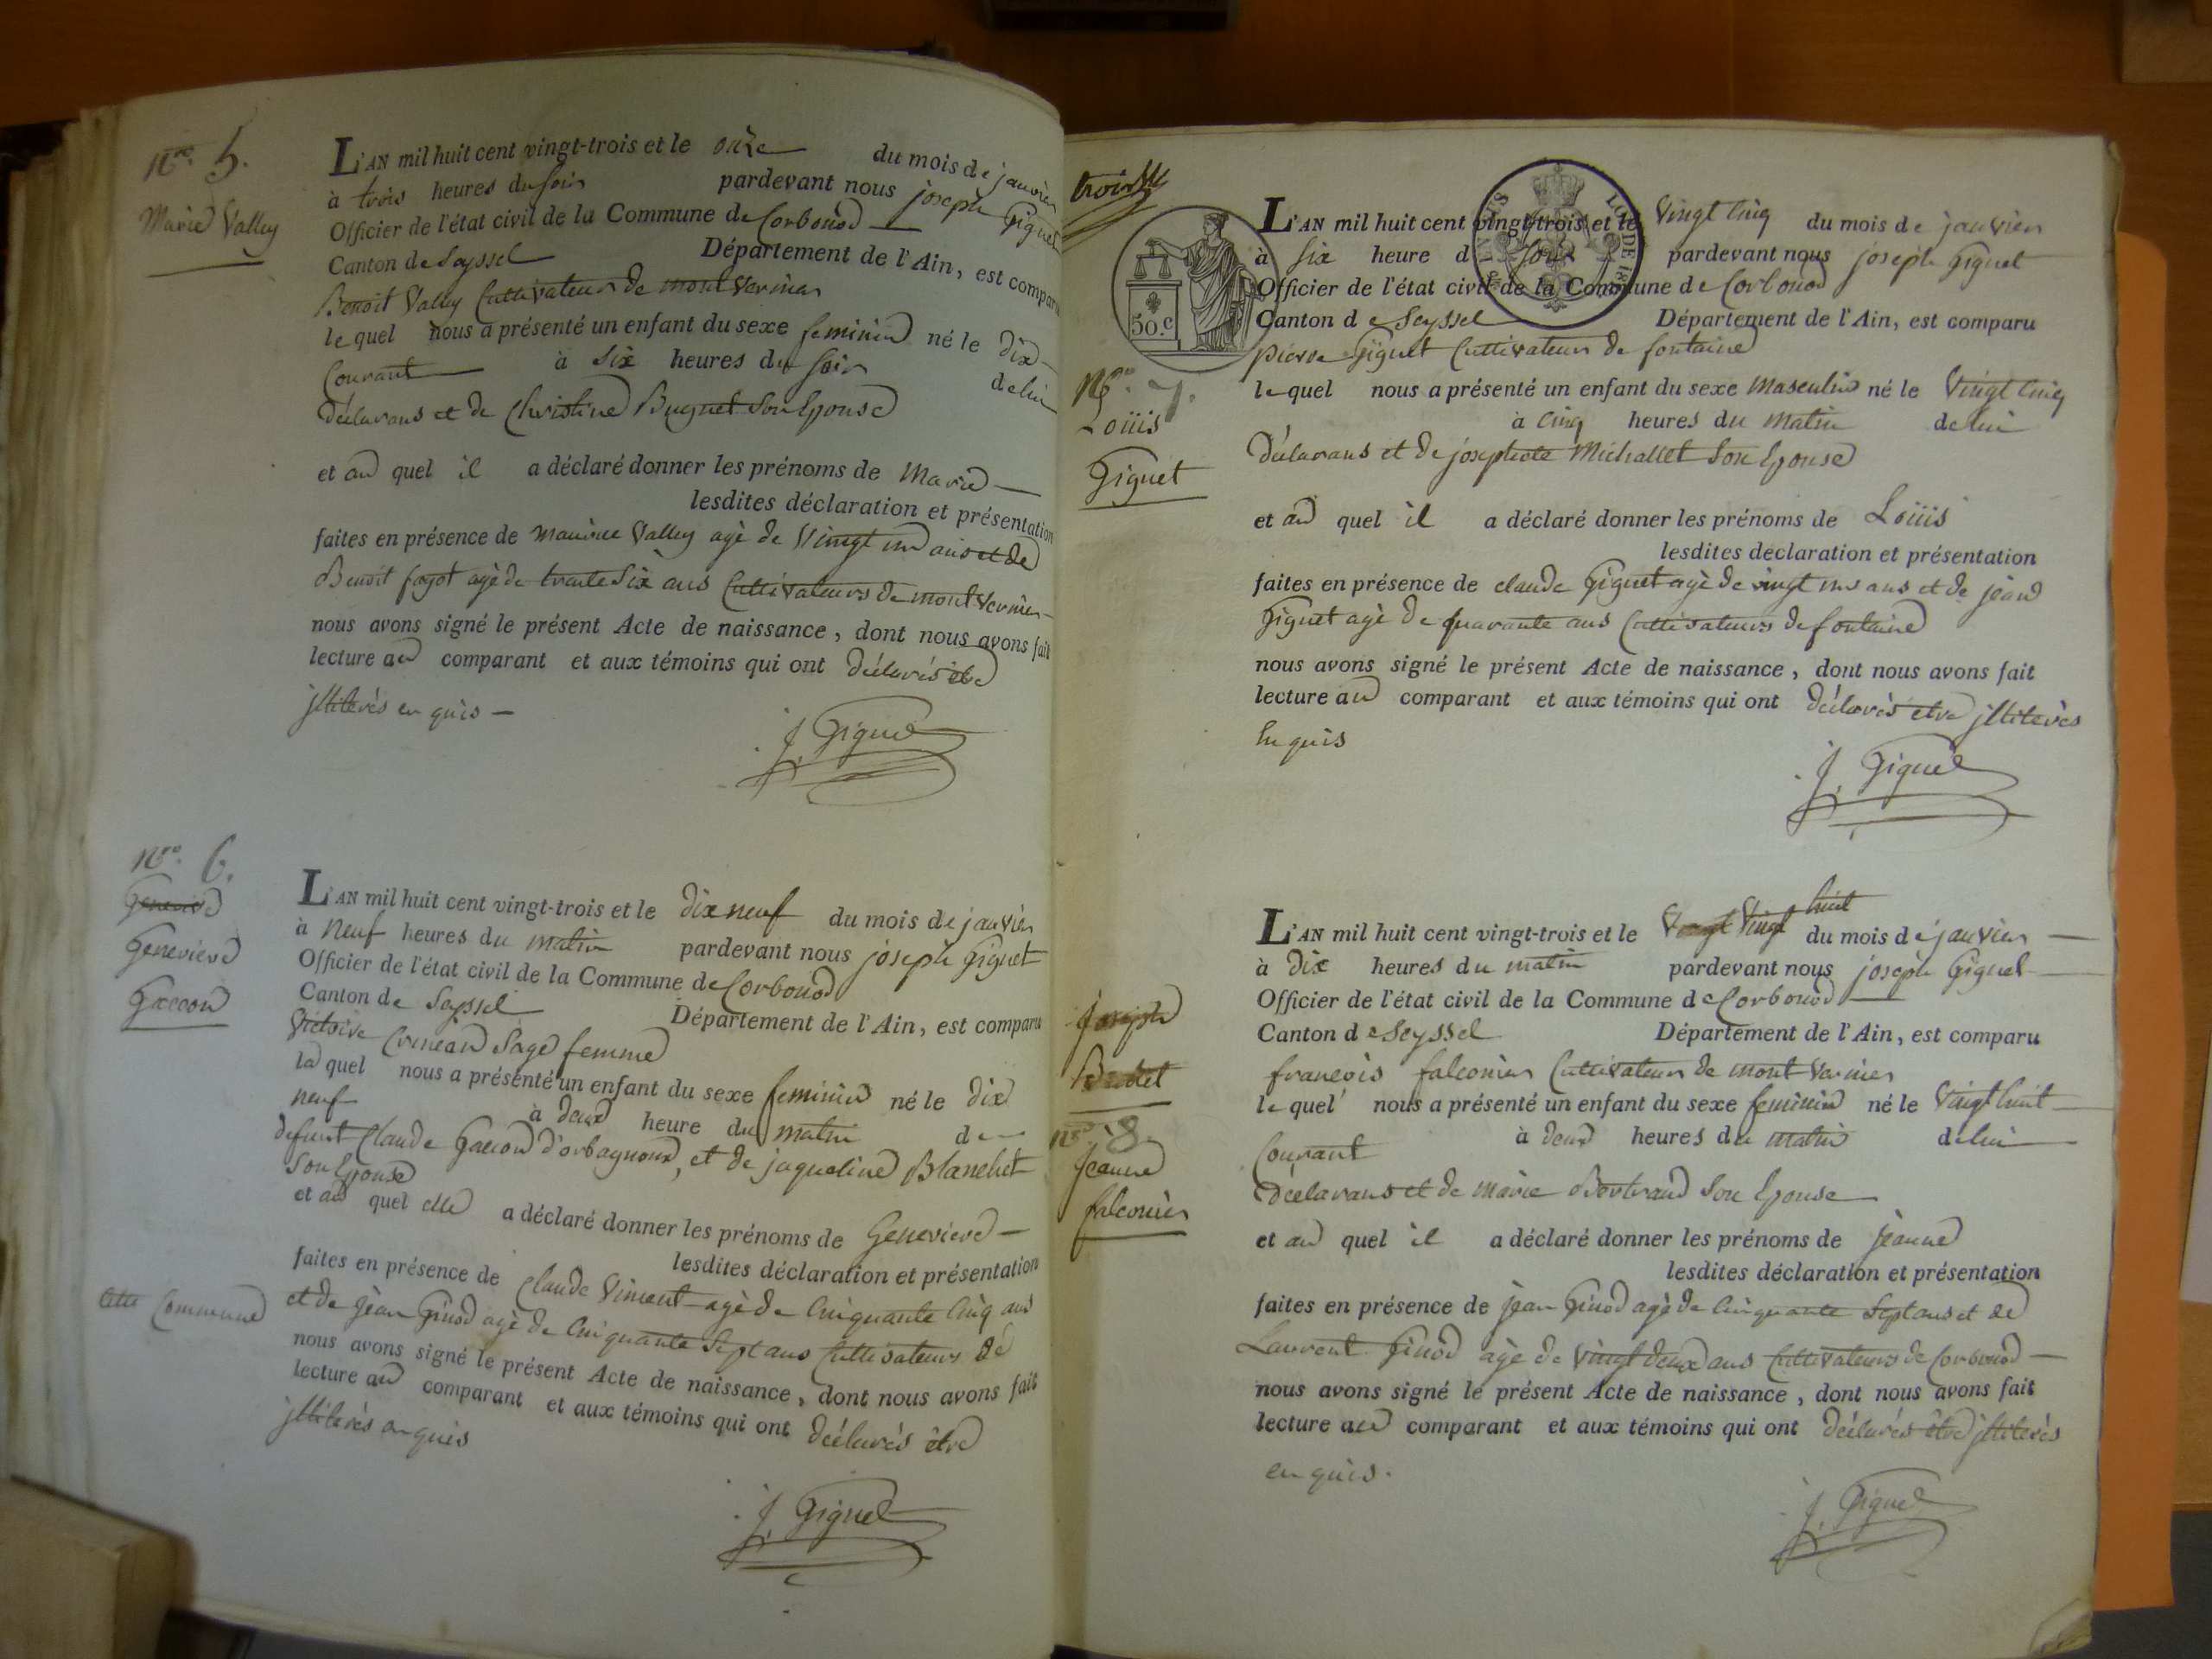 Nro. 5.
Marie Valley
L'AN mil huit cent vingt-trois et le onze du mois de janvier
à trois heures du soir pardevant nous joseph Giguet
Officier de l'état civil de la Commune de Corbonod
Canton de Seyssel Département de l'Ain, est comparu
Benoit Valley Cultivateur de mont Vernier
le quel nous a présenté un enfant du sexe feminin né le dix
Courant à six heures du soir de lui
déclarans et de Christine Buguet son Epouse
et au quel il a déclaré donner les prénoms de Marie
lesdites déclaration et présentation
faites en présence de maurice Valley agè de Vingt un ans et de
Benoit fayot agè de trente six ans Cultivateurs de mont Vernier
nous avons signé le présent Acte de naissance, dont nous avons fait
lecture au comparant et aux témoins qui ont déclarés etre
jlliterés en quis
J. Giguet
Nro. 6.
Genevieve
Genevieve
Gaccon
L'AN mil huit cent vingt-trois et le dix neuf du mois de janvier
à neuf heures du matin pardevant nous joseph Giguet
Officier de l'état civil de la Commune de Corbonod
Canton de Seyssel Département de l'Ain, est comparu
Victoire sage femme
la quel nous a présenté un enfant du sexe feminin né le dix
neuf à deux heure du matin de
defunt Claude Gaccon d'orbagnoux, et de jaqueline Blanchet
son Epouse
et au quel elle a déclaré donner les prénoms de Genevieve
lesdites déclaration et présentation
faites en présence de Claude Vincent agè de Cinquante Cinq ans
et de jèan Ginod agè de Cinquante Sept ans Cultivateurs de
cette Commune
nous avons signé le présent Acte de naissance, dont nous avons fait
lecture au comparant et aux témoins qui ont déclarés ètre
jlliterés en quis
J. Giguet
trois
50.c
Nro. 7.
Loüis
Giguet
L'AN mil huit cent vingt-trois et le Vingt Cinq du mois de janvier
à six heure d soir pardevant nous joseph Giguet
Officier de l'état civil de la Commune de Corbonod
Canton de Seyssel Département de l'Ain, est comparu
pierre Giguet Cultivateur de fontaine
le quel nous a présenté un enfant du sexe Masculin né le Vingt Cinq
à Cinq heures du matin de lui
déclarans et de josephete Michallet son Epouse
et au quel il a déclaré donner les prénoms de Loüis
lesdites declaration et présentation
faites en présence de claude Giguet agè de vingt un ans et de jèan
Giguet agè de quarante ans Cultivateurs de fontaine
nous avons signé le présent Acte de naissance, dont nous avons fait
lecture au comparant et aux témoins qui ont déclarés etre jlliterés
En quis
J. Giguet
Joseph
Nro. 8.
Jeanne
falconier
L'AN mil huit cent vingt-trois et le Vingt huit du mois de janvier
à dix heures du matin pardevant nous joseph Giguet
Officier de l'état civil de la Commune de Corbonod
Canton de Seyssel Département de l'Ain, est comparu
francois falconier Cultivateur de mont Vernier
le quel nous a présenté un enfant du sexe feminin né le Vingt huit
Courant à deux heures du matin de lui
déclarans et de marie Bertrand son Epouse
et au quel il a déclaré donner les prénoms de jèanne
lesdites déclaration et présentation
faites en présence de jean Ginod agè de Cinquante Sept ans et de
Laurent Ginod agè de vingt deux ans Cultivateurs de Corbonod
nous avons signé le présent Acte de naissance, dont nous avons fait
lecture au comparant et aux témoins qui ont déclarés ètre jlliterés
en quis.
J. Giguet